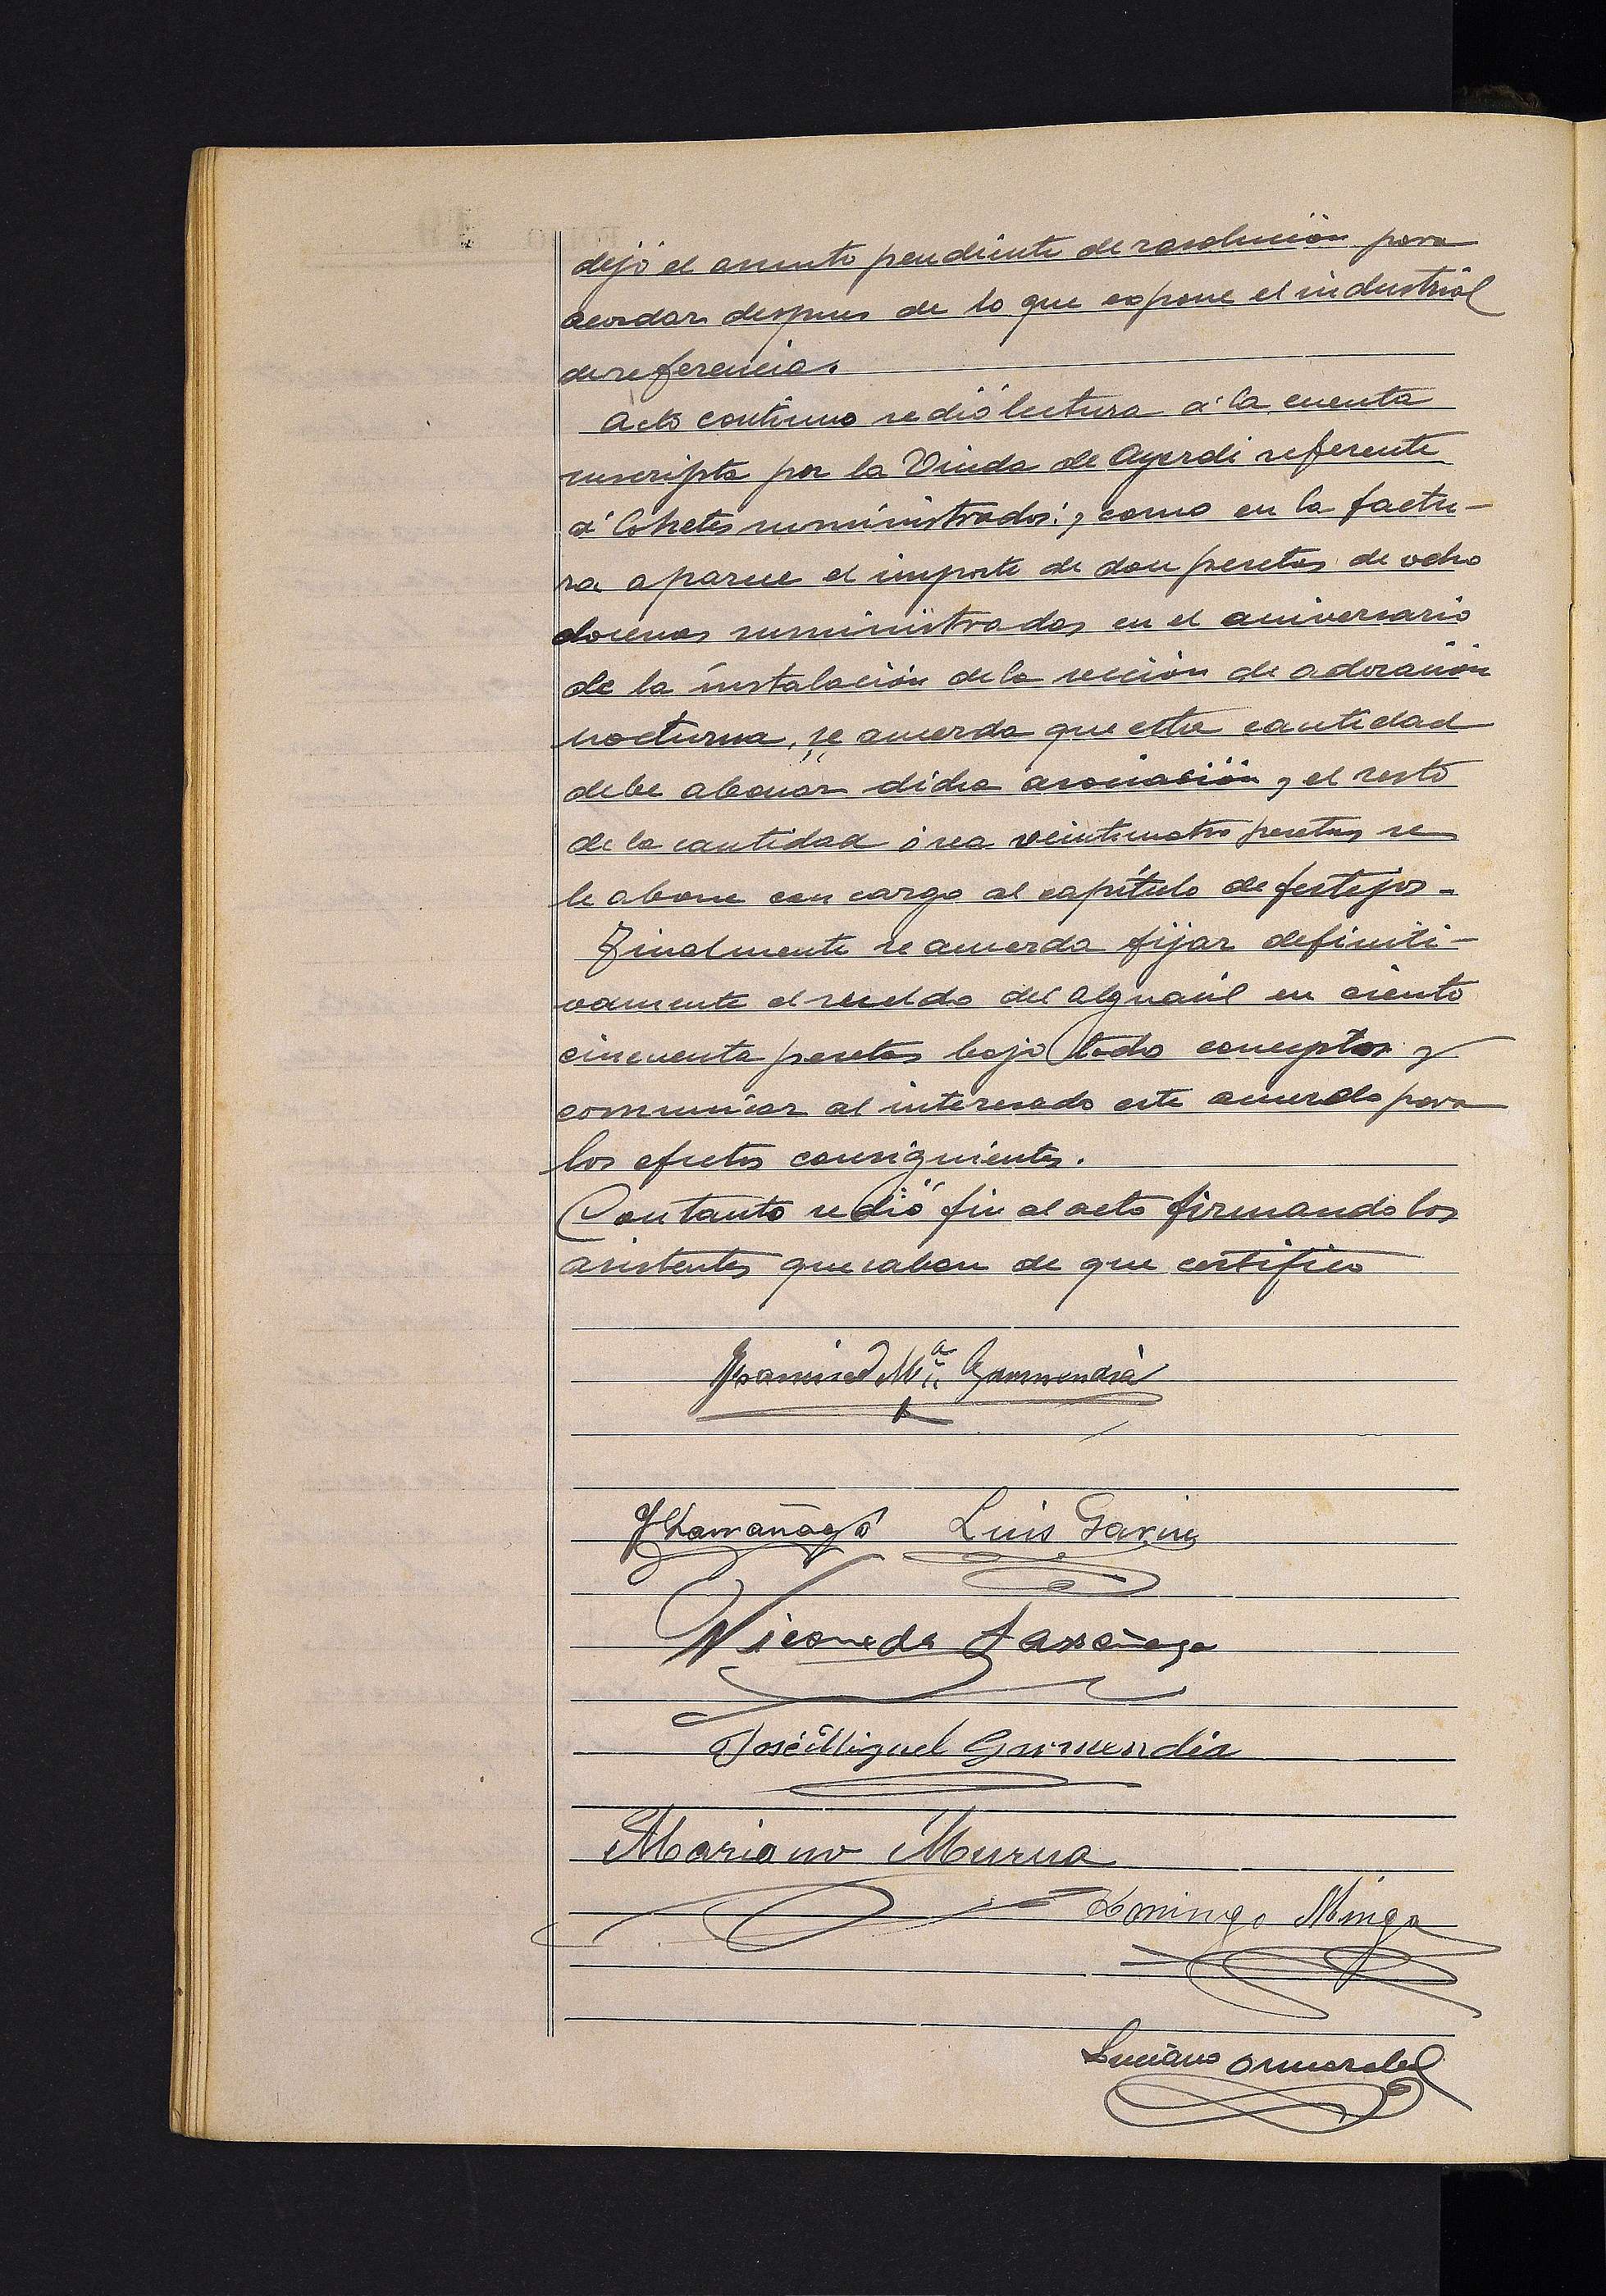 dejó el asunto pendiente de resolución para
acordar despues de lo que expone el industrial
de referencia.
Acto continuo se dió lectura á la cuenta
suscripta por la Viuda de Ayerdi referente
á Cohetes suministrados; y como en la factu-
ra aparece el importe de doce pesetas de ocho
docenas suministradas en el aniversario
de la instalación de la sección de adoración
nocturna, se acuerda que esta cantidad
debe abonar dicha asociación y el resto
de la cantidad ó sea veinticuatro pesetas se
le abone con cargo al capítulo de festejos.-
Finalmente se acuerda fijar definiti-
vamente el sueldo del alguacil en ciento
cincuenta pesetas bajo todo conceptos y
comunicar al interesado este acuerdo para
los efectos consiguientes.
Con tanto se dió fin al acto firmando los
asistentes que saben de que certifico
Francisco Mª Garmendia
Luis Garin
Nicomedes Larrañaga
José Miguel Garmendia
Mariano Murua
Domingo Minga
Luciano